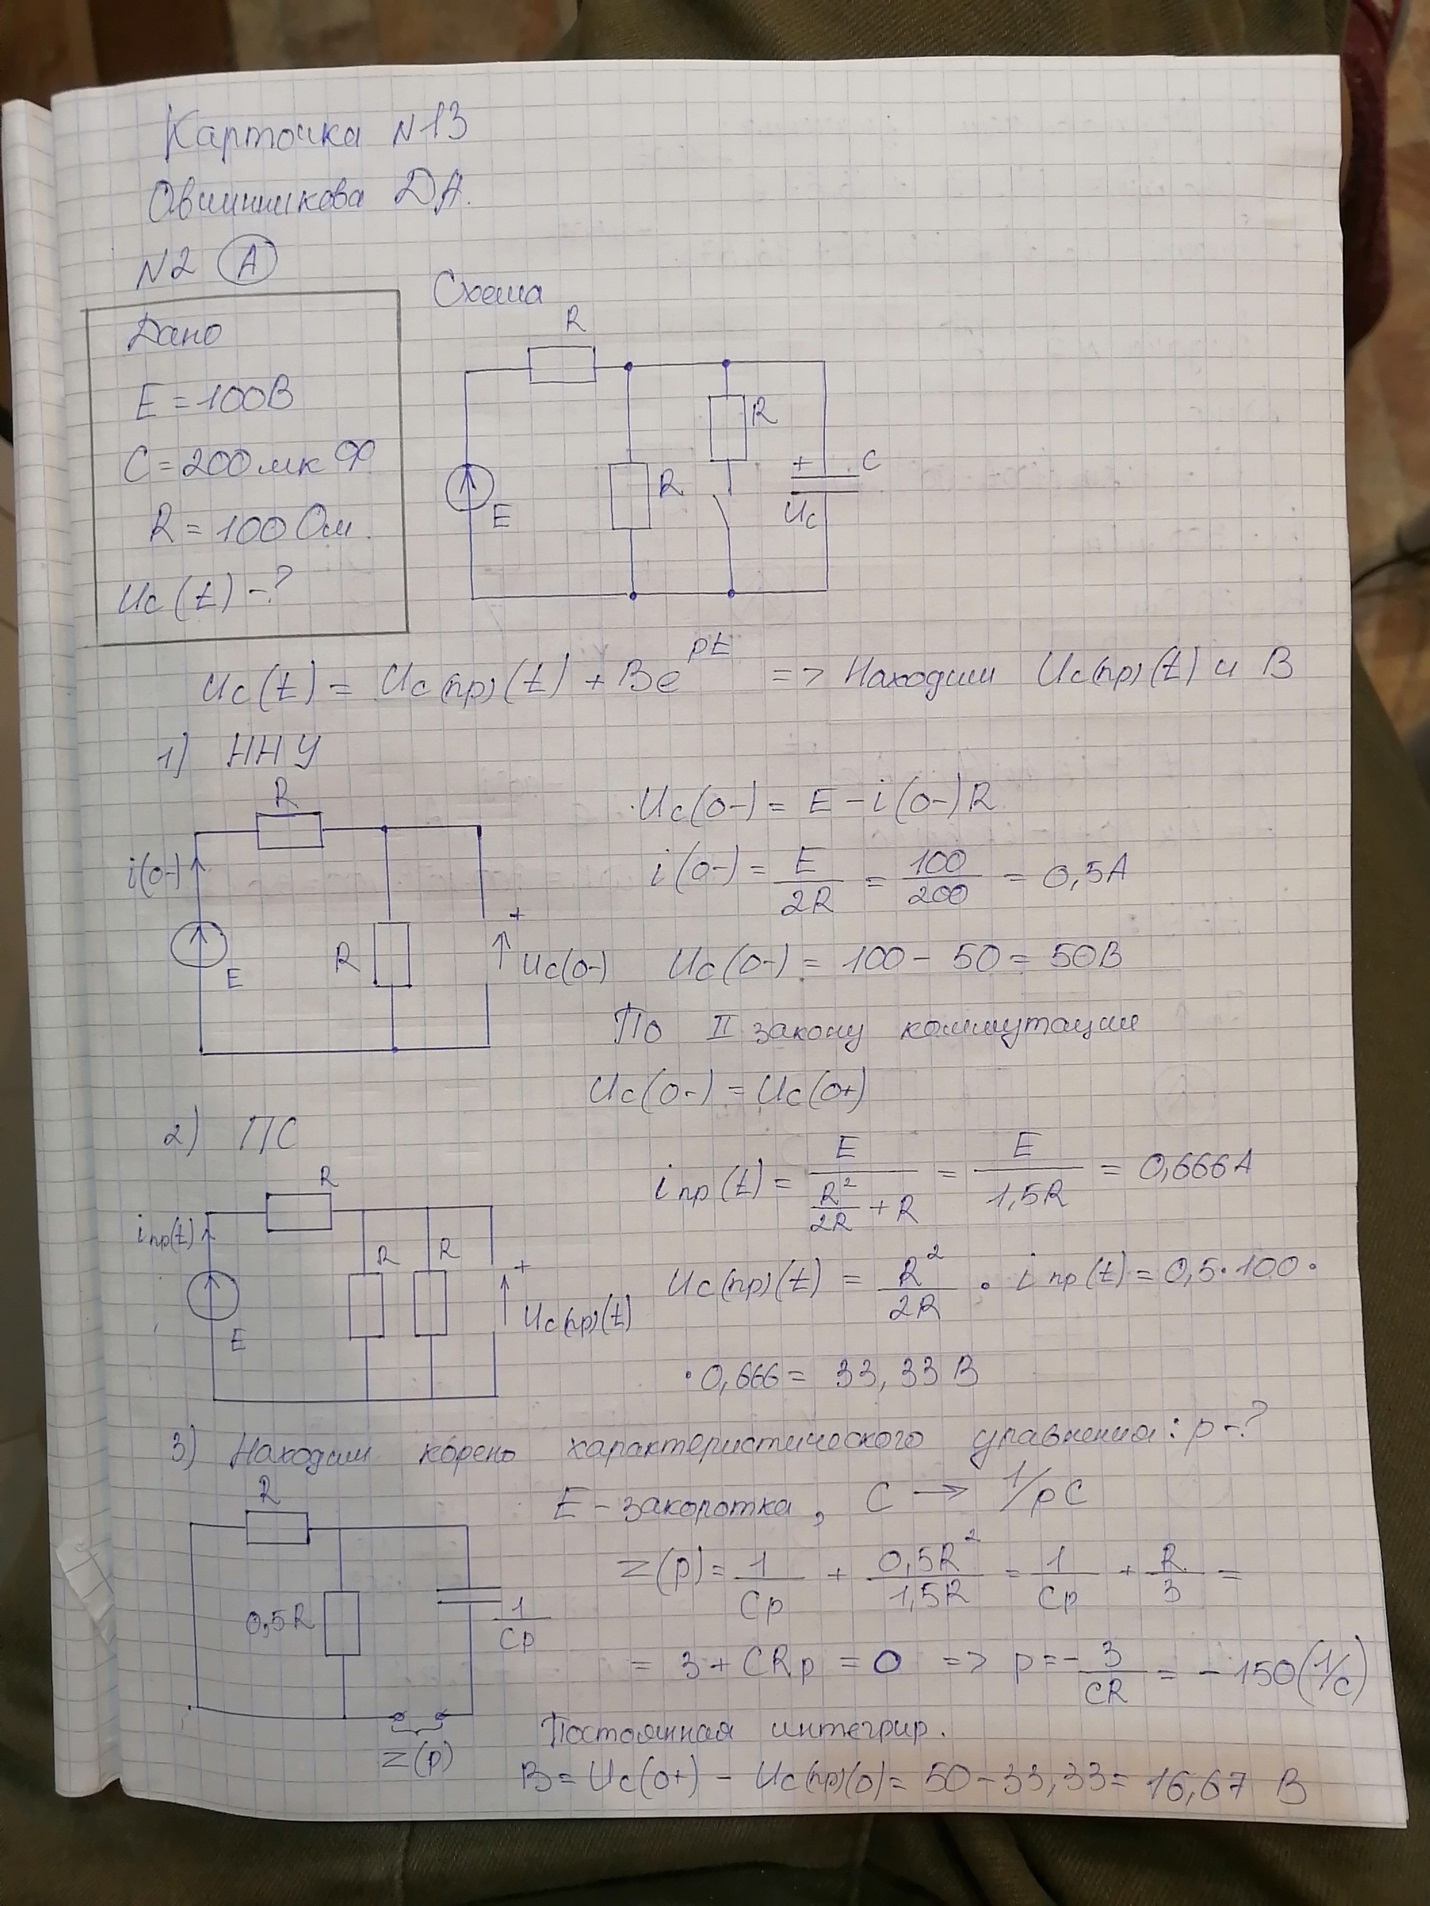 Карточка N13
Овчинникова Д.А.
N2 (A)
Дано
E = 100В
C = 200 мкФ
R = 100 Ом.
Uc(t) - ?
Схема
R
R
R
+
C
E
Uc
Uc(t) = Uc(пр)(t) + Be^pt => Находим Uc(пр)(t) и B
1) ННУ
R
i(0-)
E
R
+
Uc(0-)
Uc(0-) = E - i(0-)R
i(0-) = E/2R = 100/200 = 0,5А
Uc(0-) = 100 - 50 = 50В
По II закону коммутации
Uc(0-) = Uc(0+)
2) ПС
R
iпр(t)
E
R
R
+
Uc(пр)(t)
iпр(t) = E/(R²/2R + R) = E/1,5R = 0,666А
Uc(пр)(t) = R²/2R · iпр(t) = 0,5·100·
·0,666 = 33,33 В
3) Находим корень характеристического уравнения: p - ?
R
0,5R
1/Cp
Z(p)
E - закоротка, C → 1/pC
Z(p) = 1/Cp + 0,5R²/1,5R = 1/Cp + R/3 =
= 3 + CRp = 0 => p = - 3/CR = - 150 (1/с)
Постоянная интегрир.
B = Uc(0+) - Uc(пр)(0) = 50 - 33,33 = 16,67 В